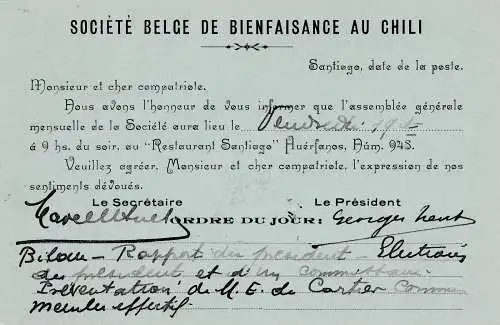 SOCIÉTÉ BELGE DE BIENFAISANCE AU CHILI
Santiago, date de la poste.
Monsieur et cher compatriote.
Nous avons l'honneur de vous informer que l'assemblée générale
mensuelle de la Société aura lieu le Vendredi
á 9 hs. du soir, au "Restaurant Santiago" Huérfanos, Núm. 943.
Veuillez agréer, Monsieur et cher compatriote, l'expression de nos
sentiments dévoués.
Le Secrétaire Le Président
ORDRE DU JOUR: Georges
Bilan - Rapport du président - Elections
du président et d'un commissaire
Présentation de M. E. de Cartier comme
membre effectif